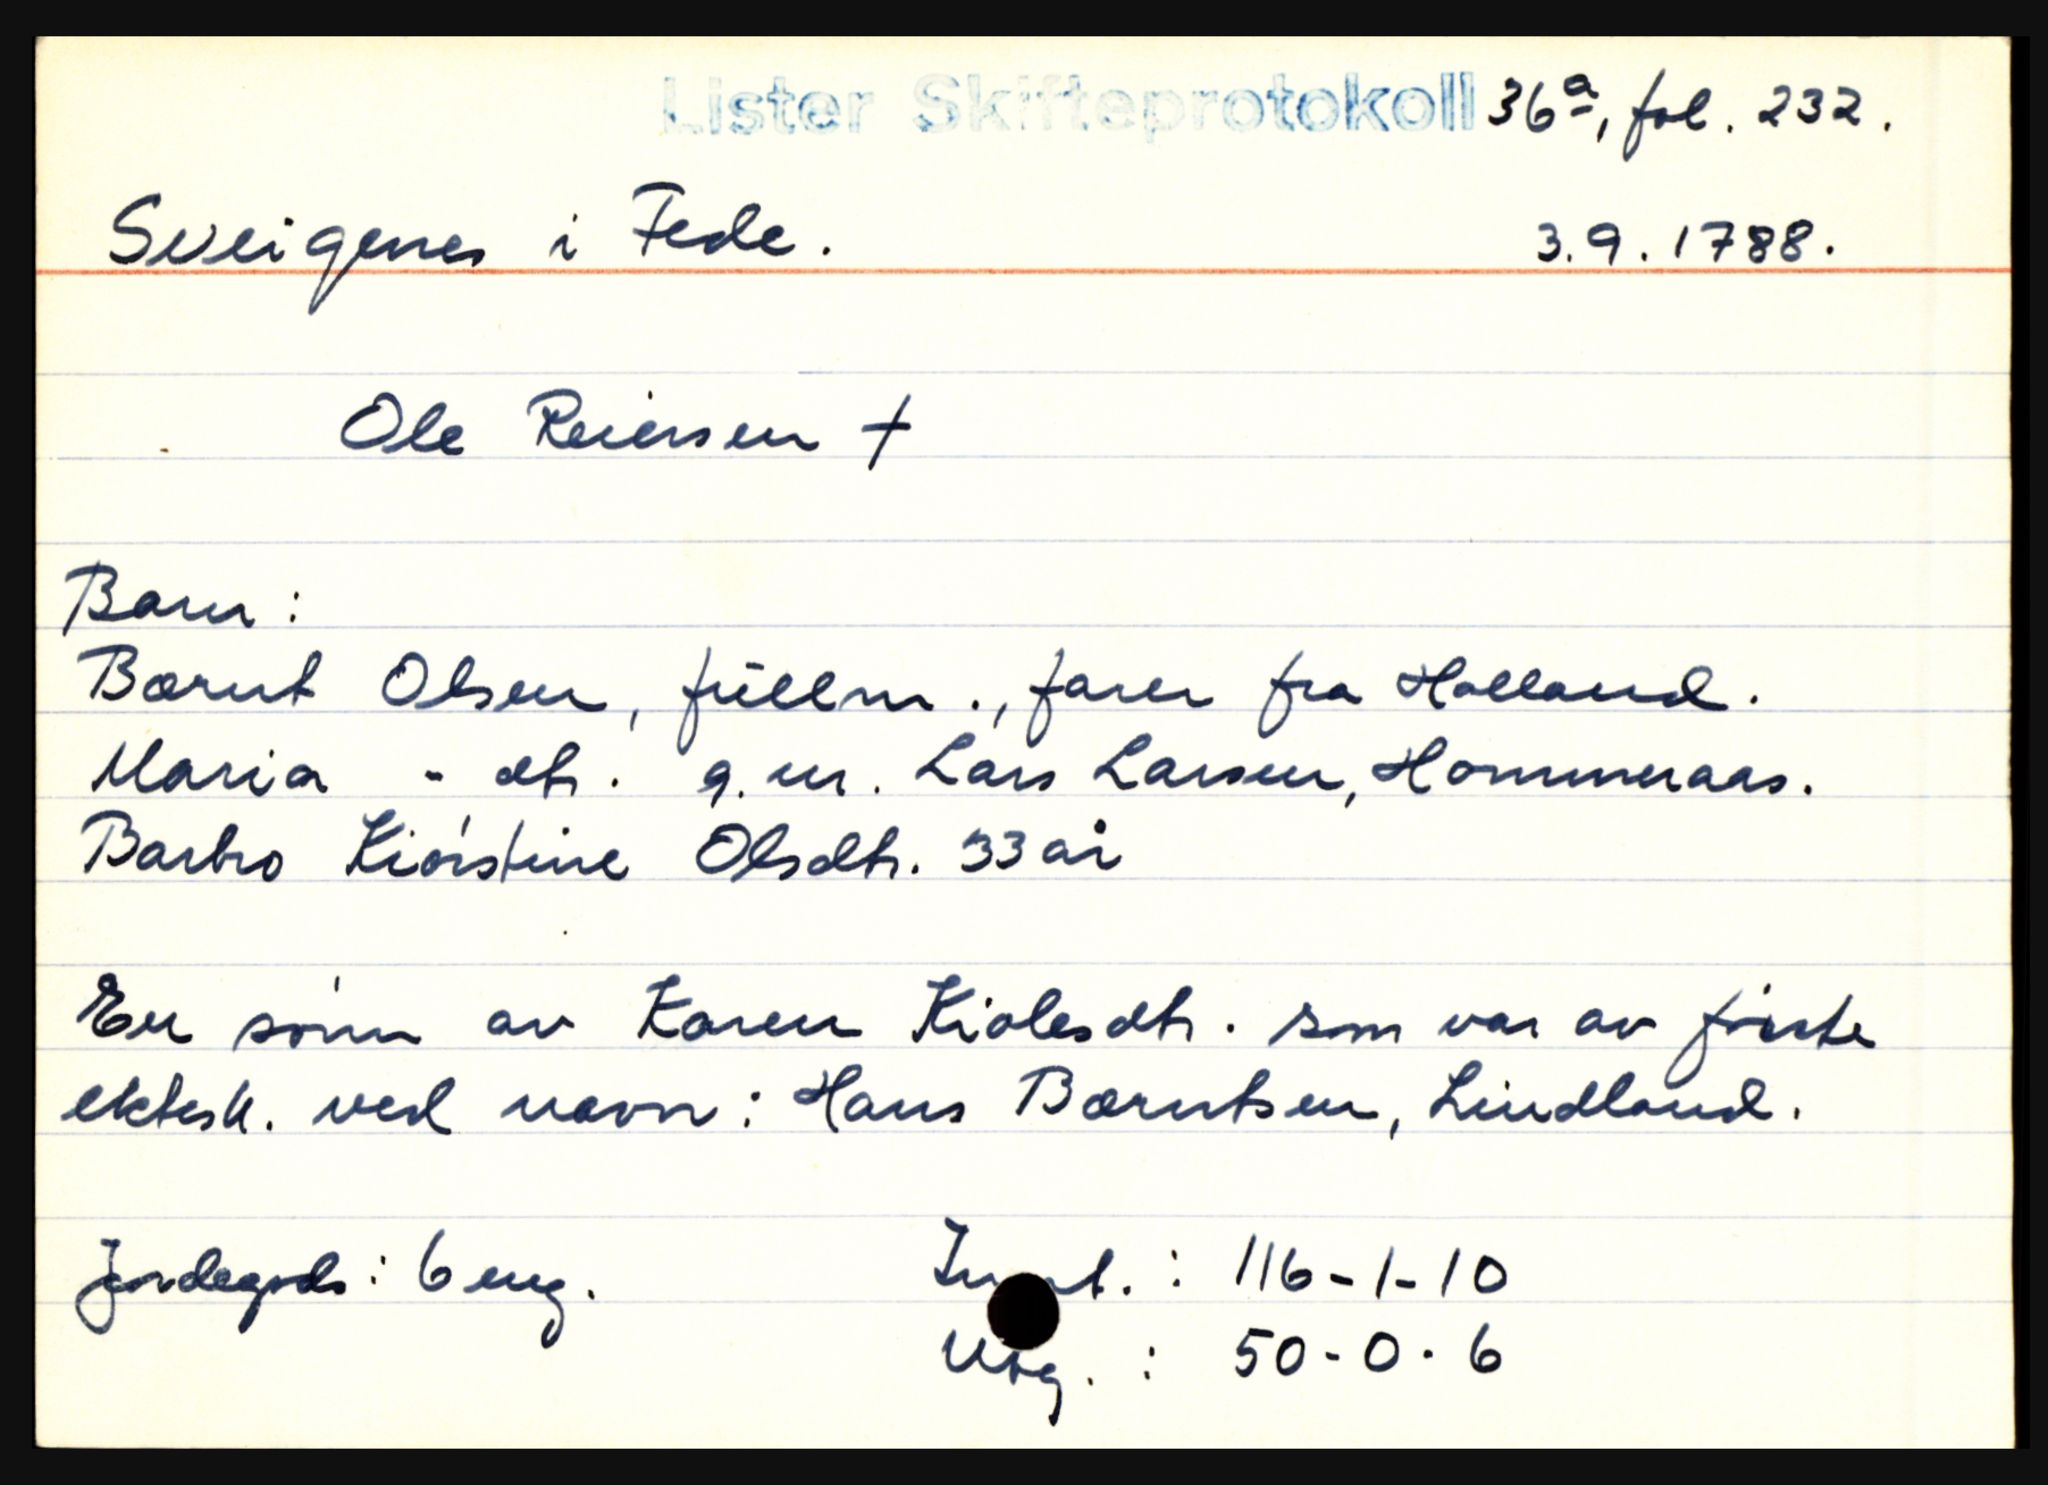 Lister Skifteprotokoll 36a, fol. 232.
Sveigenes i Fede. 3.9.1788.
Ole Reiersen †
Barn:
Bærnt Olsen, fullm., farer fra Holland.
Maria - dtr. g.m. Lars Larsen, Hommeraas.
Barbro Kiørstine Olsdtr. 33 år
En sønn av Karen Kiølesdtr. som var av første
ektesk. ved navn: Hans Bærntsen, Lindland.
Jordegods: 6 eng. : 116-1-10
Utg. : 50-0-6